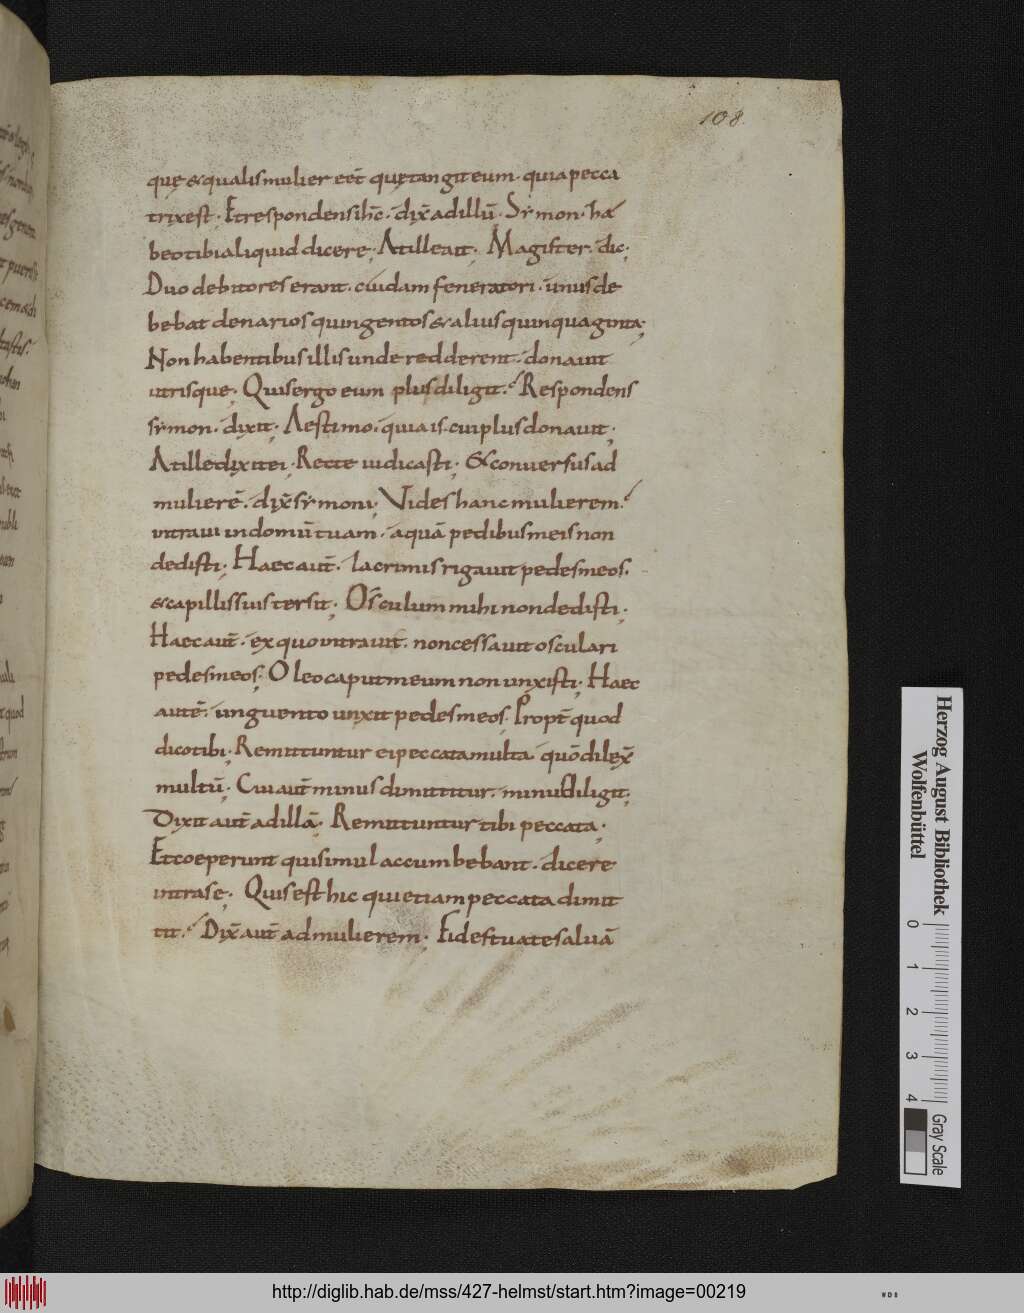 108.
quę & qualis mulier eēt quę tangit eum · quia pecca
trix est · Et respondens ih̄c · dix̄ ad illū · Sẏmon · ha
beo tibi aliquid dicere; At ille ait · Magister · dic;
Duo debitores erant · cuidam feneratori · unus de
bebat denarios quingentos & alius quinquaginta;
Non habentibus illis unde redderent · donauit
utrisque; Quis ergo eum plus diligit? Respondens
sẏmon · dixit; Aestimo · quia is · cui plus donauit;
At ille dixit ei; Recte iudicasti; & conuersus ad
mulierē · dix̄ sẏmoni; Vides hanc mulierem?
intraui in domū tuam · aquā pedibus meis non
dedisti; Haec aut̄ · lacrimis rigauit pedes meos ·
& capillis suis tersit; Osculum mihi non dedisti;
Haec aut̄ · ex quo intrauit · non cessauit osculari
pedes meos; Oleo caput meum non unxisti; Haec
autē · unguento unxit pedes meos; Propt̄ quod
dico tibi; Remittuntur ei peccata multa · quō dilex̄
multū; Cui aut̄ minus dimittitur · minus diligit;
Dixit aut̄ ad illā; Remittuntur tibi peccata;
Et coeperunt qui simul accumbebant · dicere
intra se; Quis est hic qui etiam peccata dimit
tit? Dix̄ aut̄ ad mulierem; Fides tua te saluā
Herzog August Bibliothek
Wolfenbüttel
0 1 2 3 4
Gray Scale
http://diglib.hab.de/mss/427-helmst/start.htm?image=00219